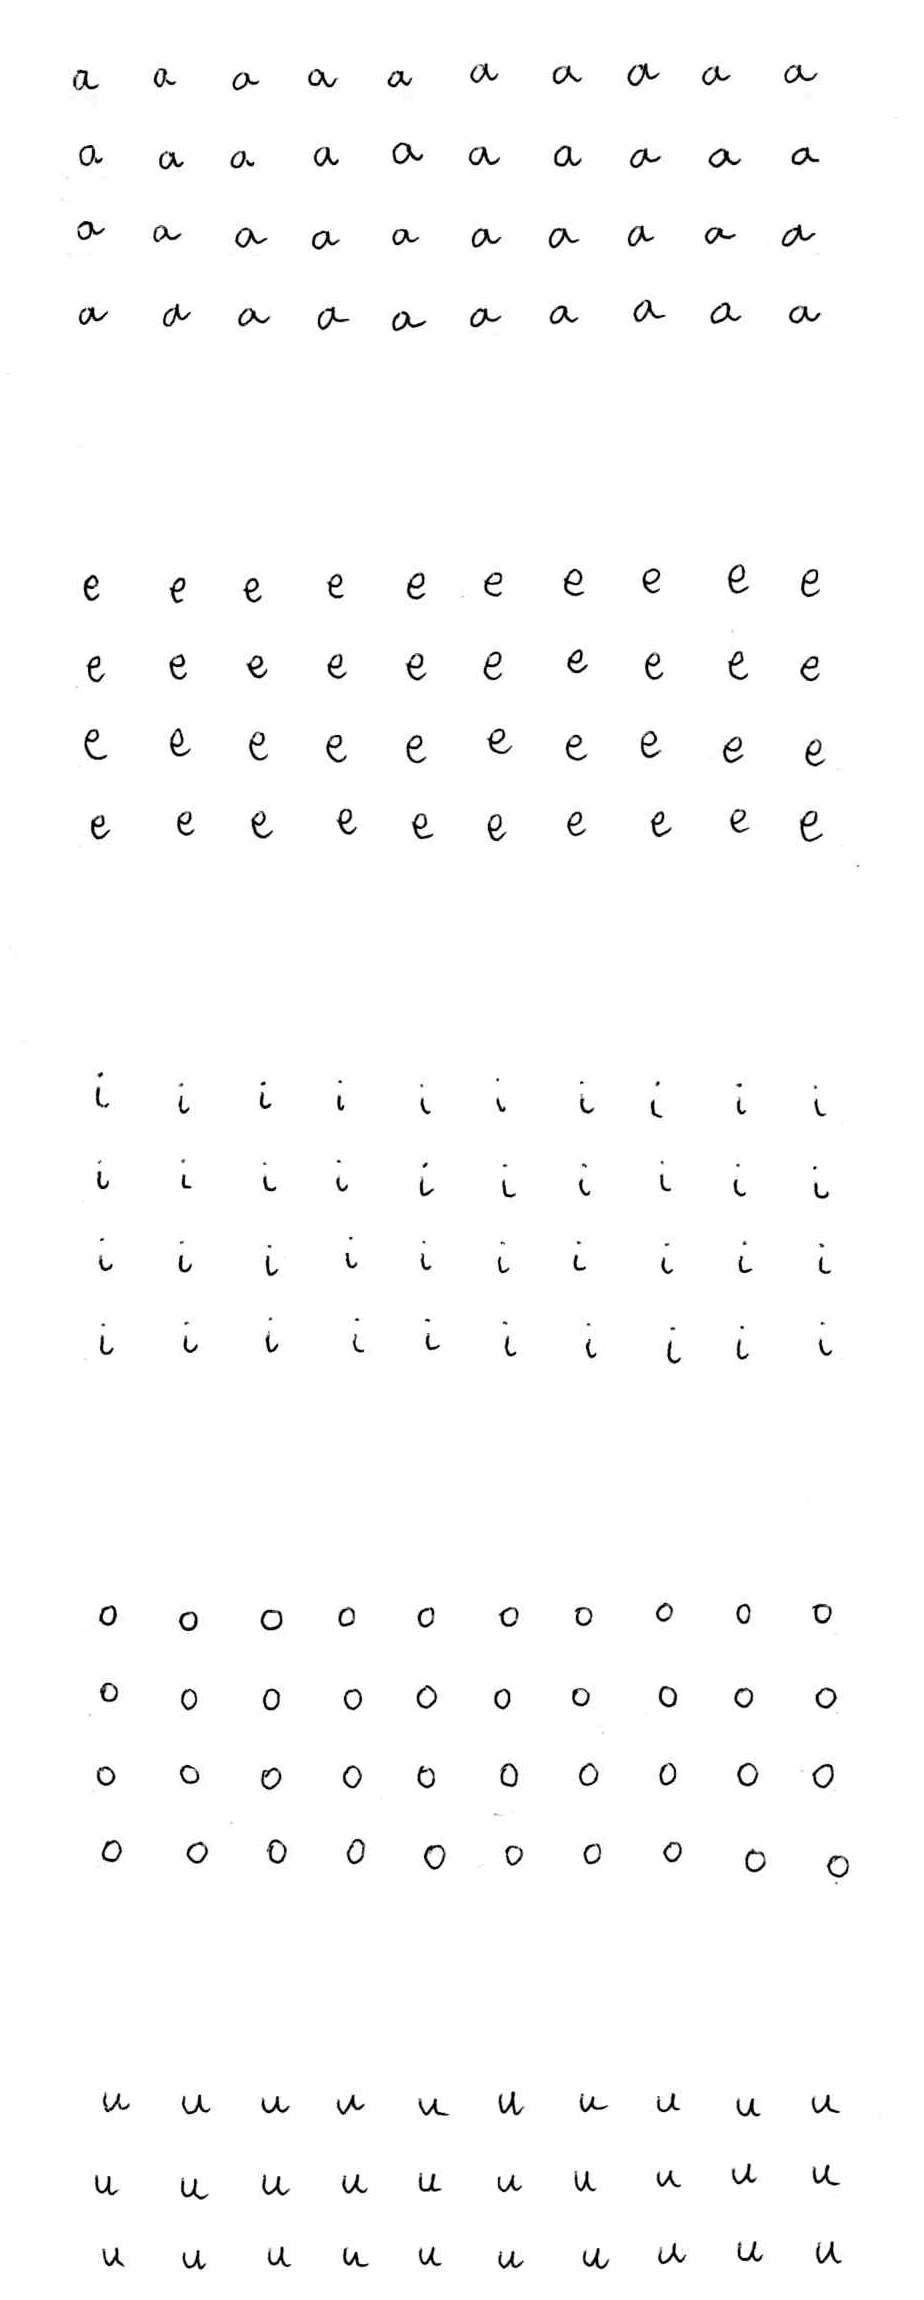 a a a a a a a a a a
a a a a a a a a a a
a a a a a a a a a a
a a a a a a a a a a
e e e e e e e e e e
e e e e e e e e e e
e e e e e e e e e e
e e e e e e e e e e
i i i i i i i i i i
i i i i i i i i i i
i i i i i i i i i i
i i i i i i i i i i
o o o o o o o o o o
o o o o o o o o o o
o o o o o o o o o o
o o o o o o o o o o
u u u u u u u u u u
u u u u u u u u u u
u u u u u u u u u u